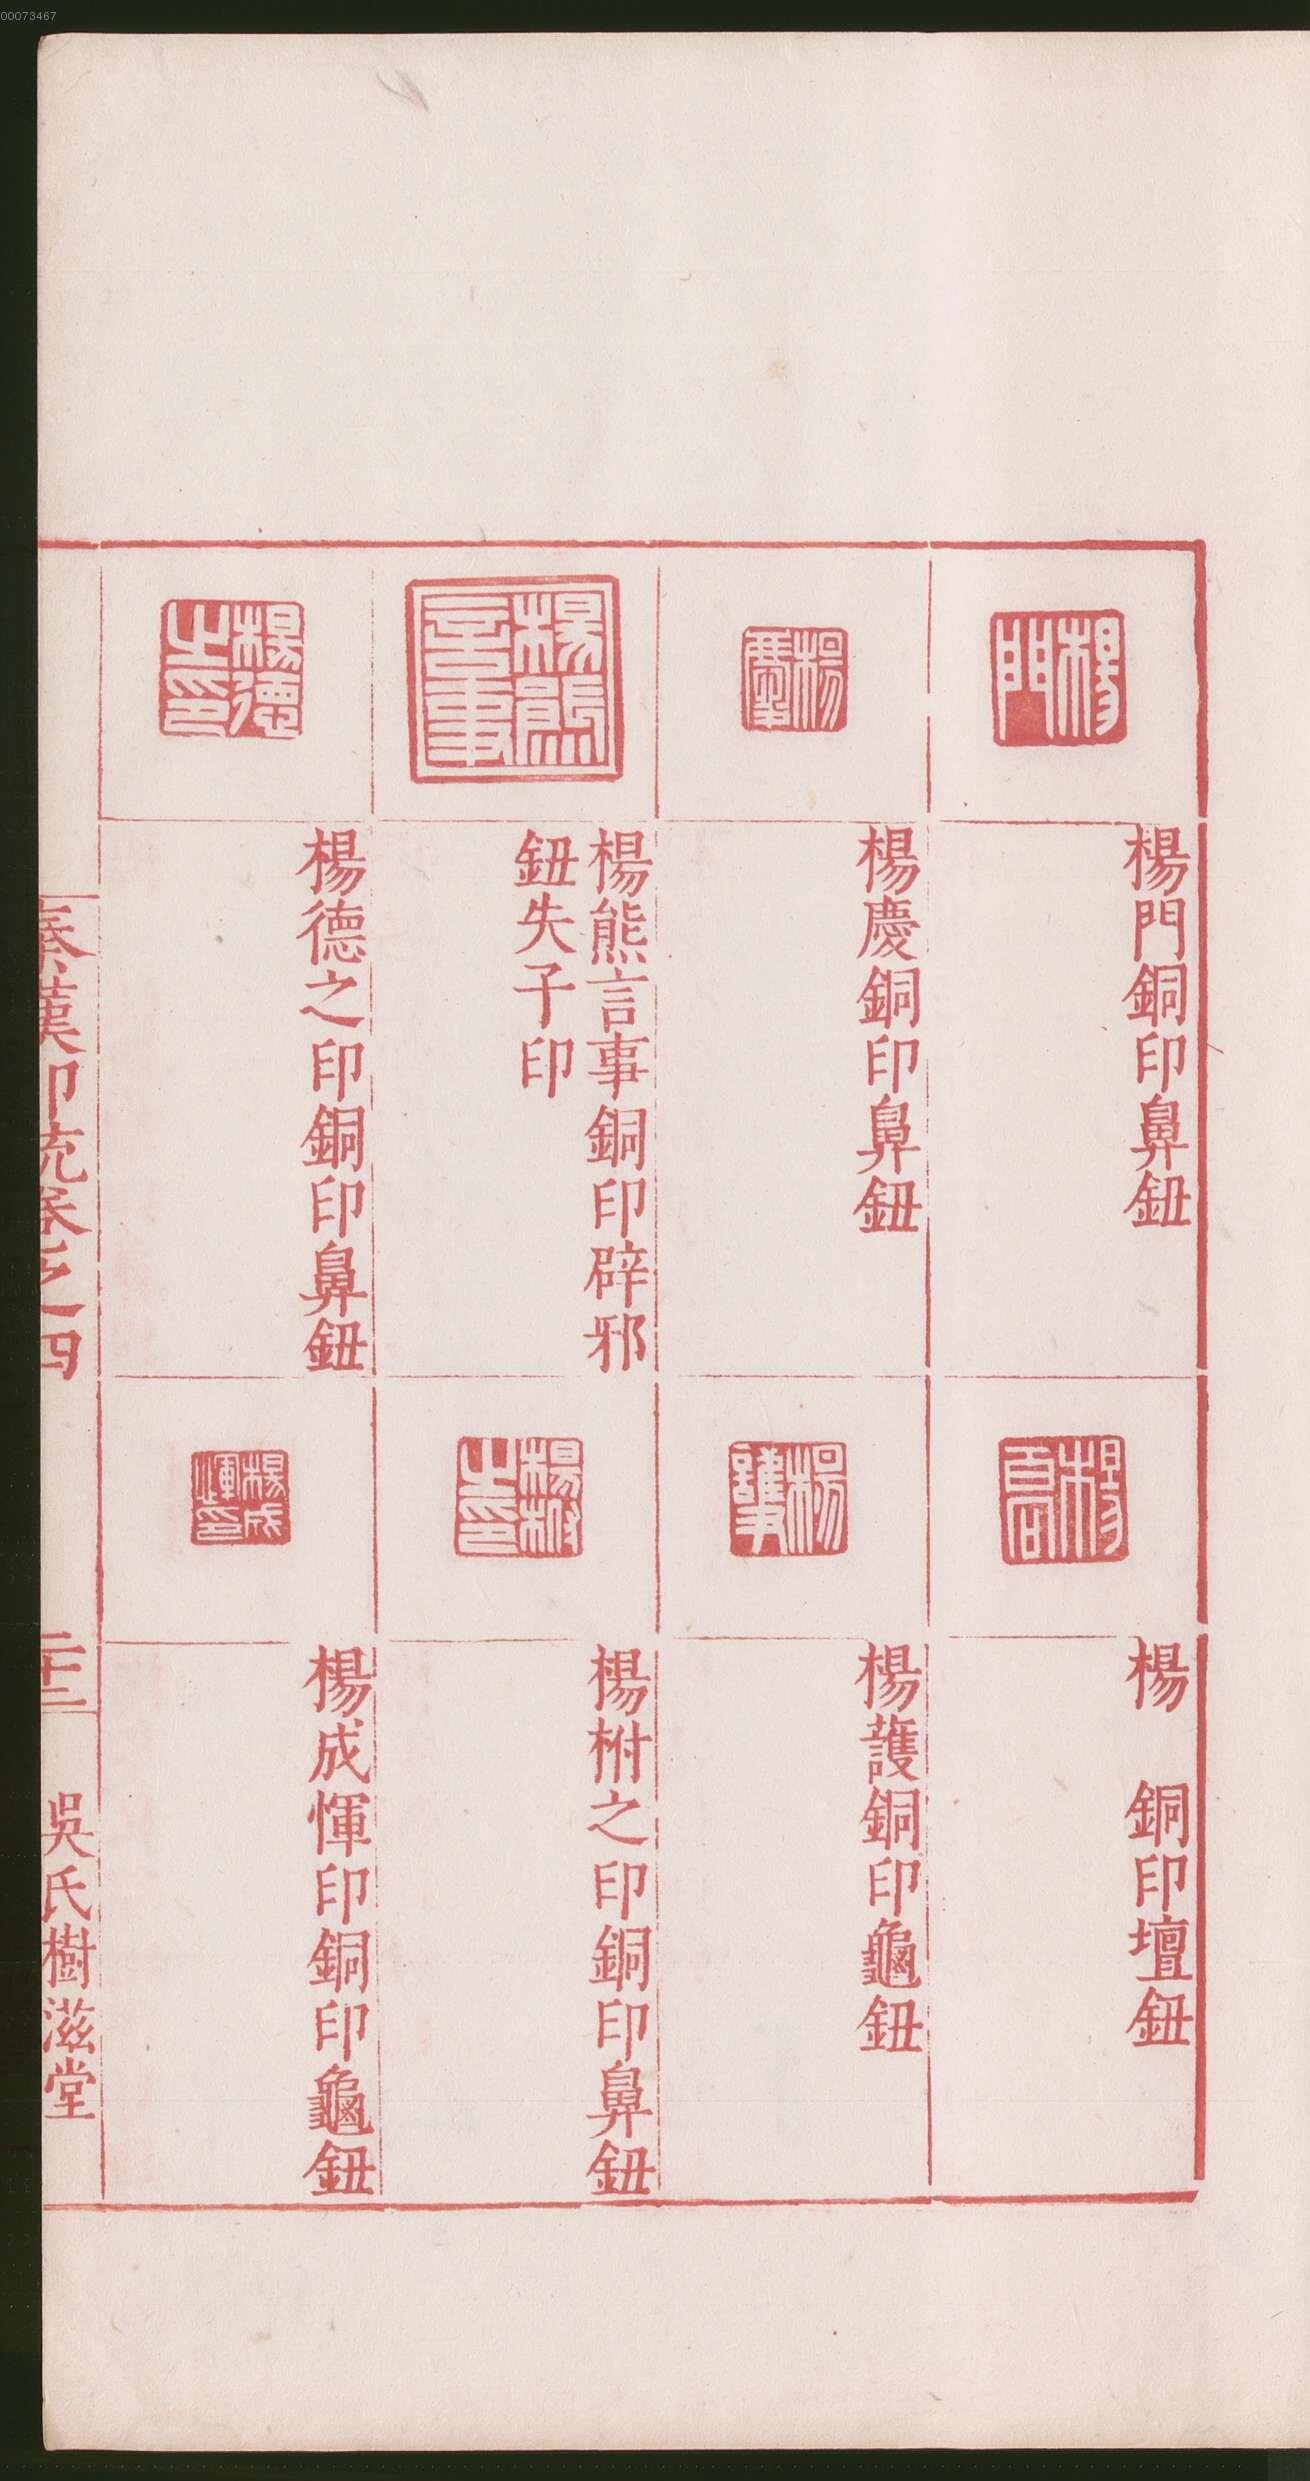 00073467
楊門
楊門銅印鼻鈕
楊
楊　銅印壇鈕
楊慶
楊慶銅印鼻鈕
楊護
楊護銅印龜鈕
楊熊言事
楊熊言事銅印辟邪
鈕失子印
楊柎之印
楊柎之印銅印鼻鈕
楊德之印
楊德之印銅印鼻鈕
楊成惲印
楊成惲印銅印龜鈕
秦漢印統卷之四
二十二
吳氏樹滋堂